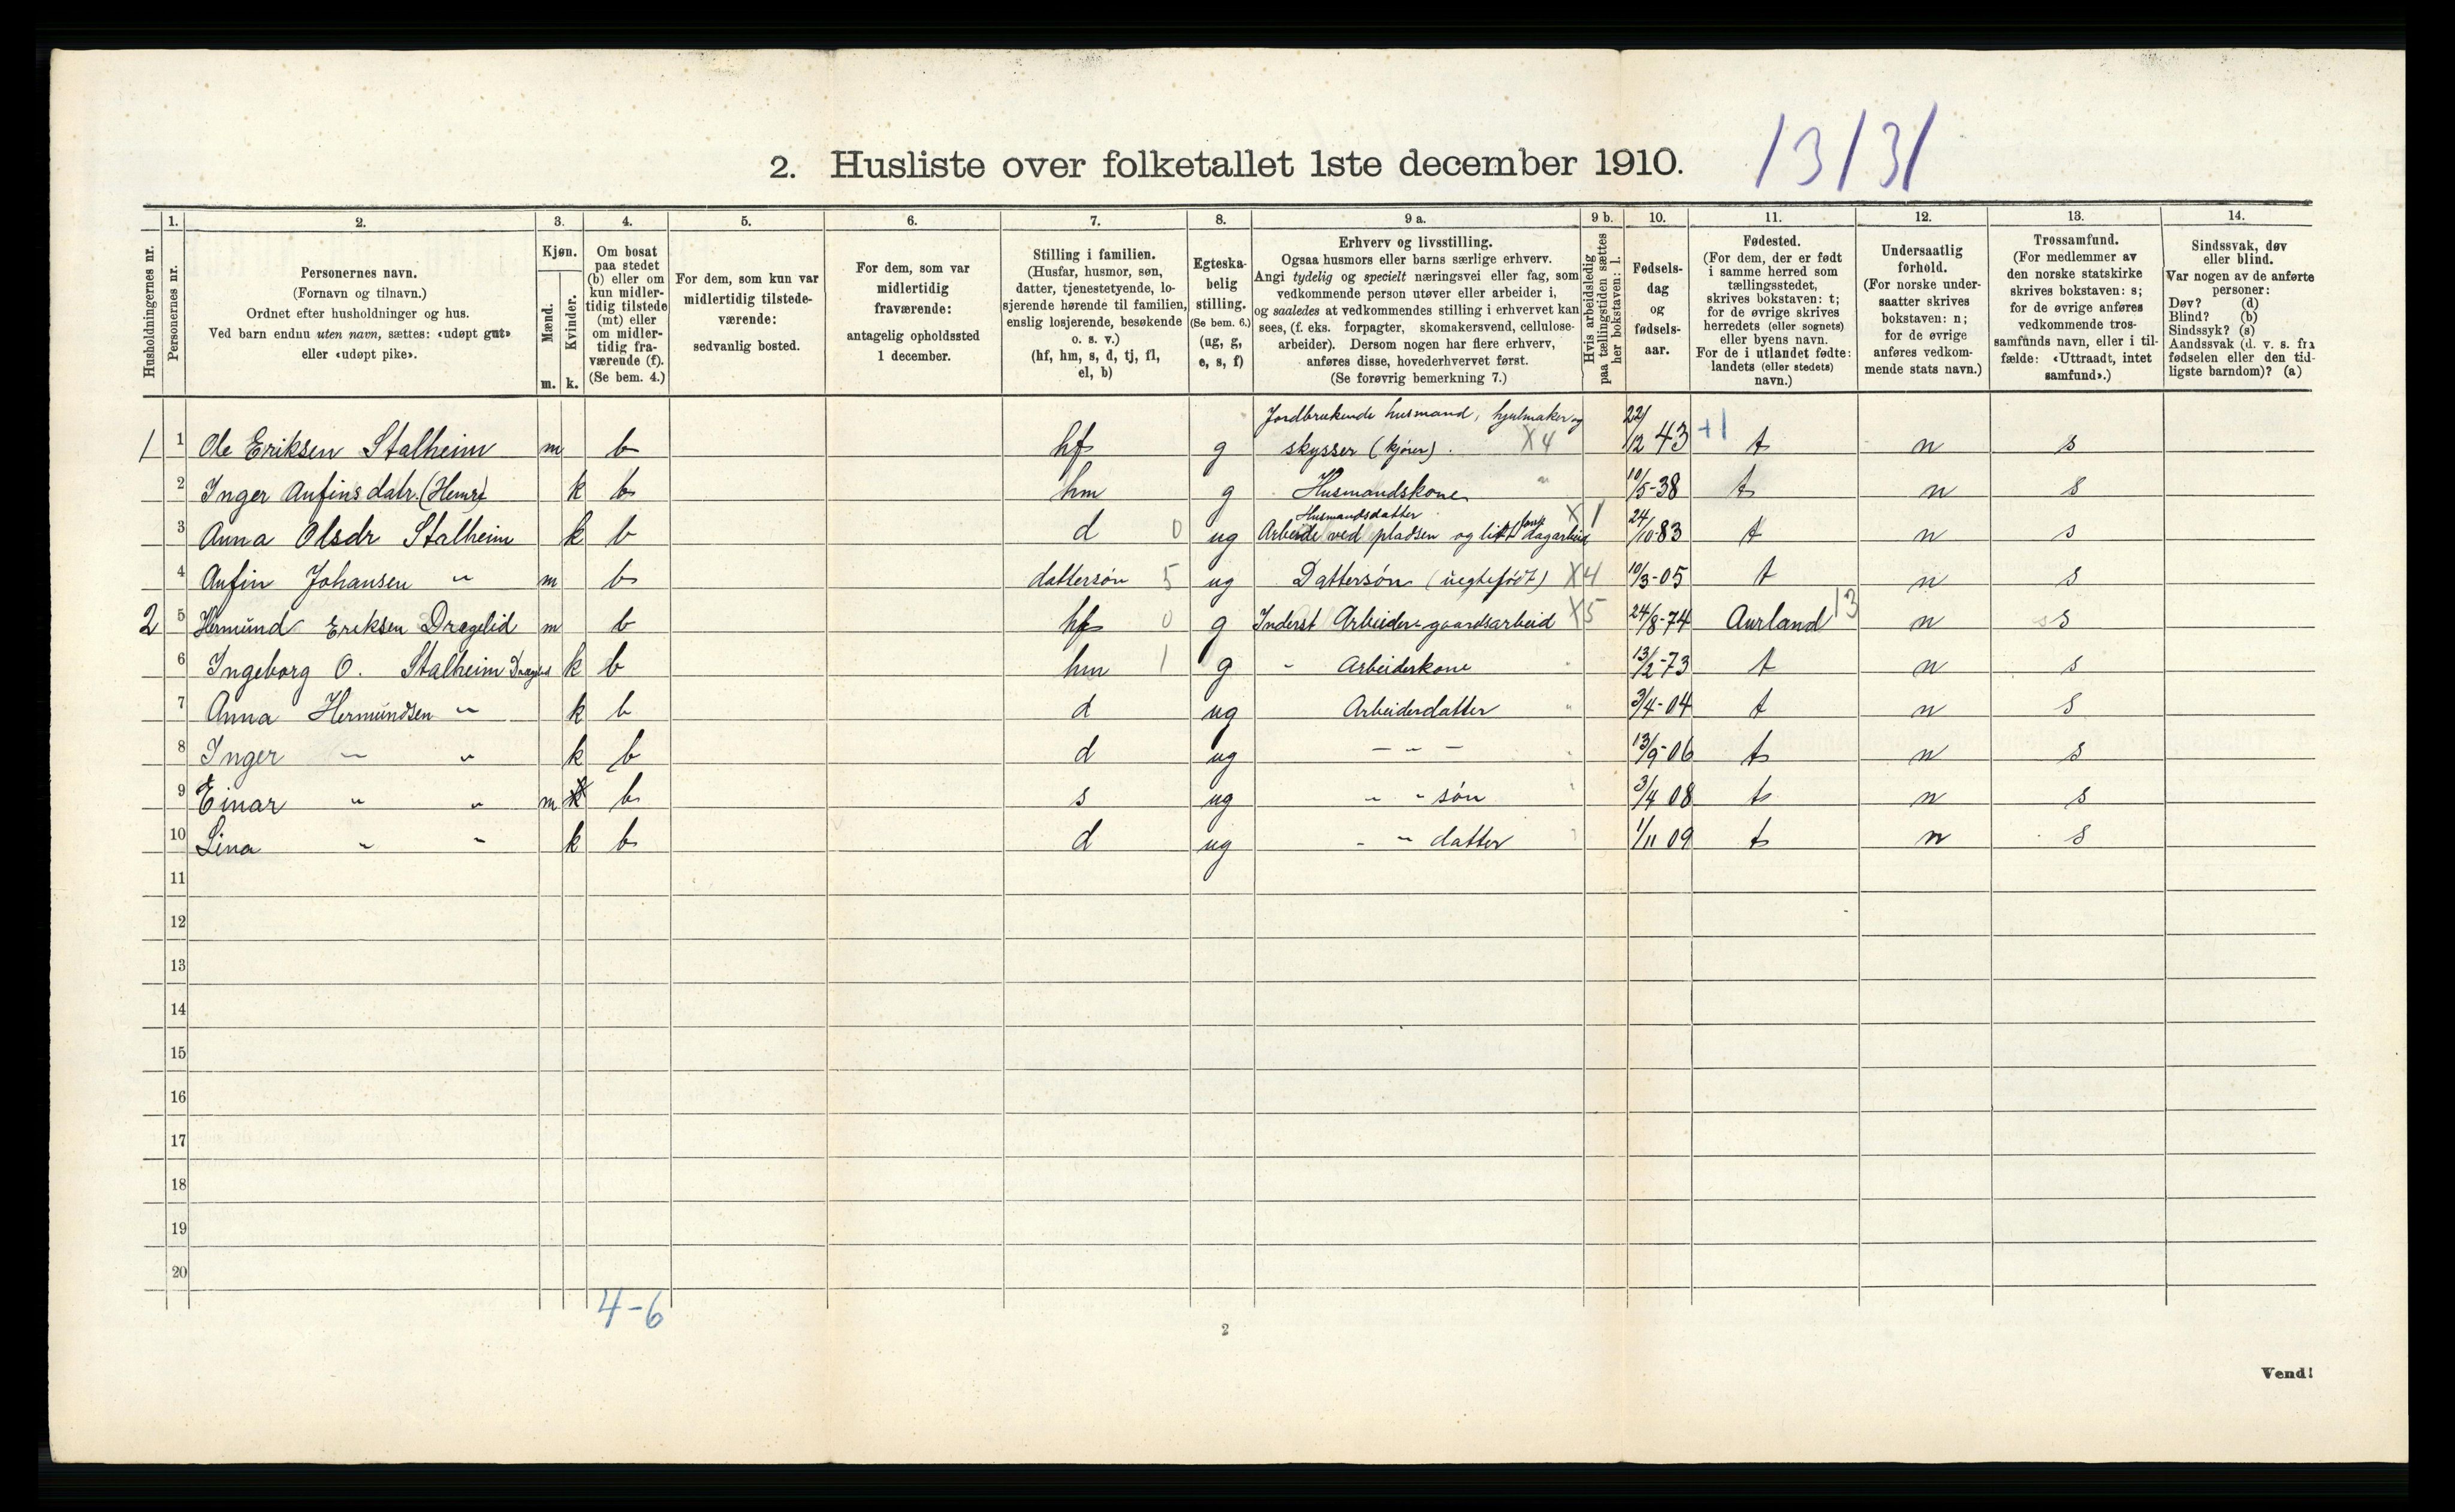 2. Husliste over folketallet 1ste december 1910. 13131
Husholdningernes nr.
1. Personernes nr.
2. Personernes navn.
(Fornavn og tilnavn.)
Ordnet efter husholdninger og hus.
Ved barn endnu uten navn, sættes: «udøpt gut»
eller «udøpt pike».
3. Kjøn.
Mænd. Kvinder.
m. k.
4. Om bosat
paa stedet
(b) eller om
kun midler-
tidig tilstede
(mt) eller
om midler-
tidig fra-
værende (f).
(Se bem. 4.)
5. For dem, som kun var
midlertidig tilstede-
værende:
sedvanlig bosted.
6. For dem, som var
midlertidig
fraværende:
antagelig opholdssted
1 december.
7. Stilling i familien.
(Husfar, husmor, søn,
datter, tjenestetyende, lo-
sjerende hørende til familien,
enslig losjerende, besøkende
o. s. v.)
(hf, hm, s, d, tj, fl,
el, b)
8. Egteska-
belig
stilling.
(Se bem. 6.)
(ug, g,
e, s, f)
9 a. Erhverv og livsstilling.
Ogsaa husmors eller barns særlige erhverv.
Angi tydelig og specielt næringsvei eller fag, som
vedkommende person utøver eller arbeider i,
og saaledes at vedkommendes stilling i erhvervet kan
sees, (f. eks. forpagter, skomakersvend, cellulose-
arbeider). Dersom nogen har flere erhverv,
anføres disse, hovederhvervet først.
(Se forøvrig bemerkning 7.)
9 b. Hvis arbeidsledig
paa tællingstiden sættes
her bokstaven: l.
10. Fødsels-
dag
og
fødsels-
aar.
11. Fødested.
(For dem, der er født
i samme herred som
tællingsstedet,
skrives bokstaven: t;
for de øvrige skrives
herredets (eller sognets)
eller byens navn.
For de i utlandet fødte:
landets (eller stedets)
navn.)
12. Undersaatlig
forhold.
(For norske under-
saatter skrives
bokstaven: n;
for de øvrige
anføres vedkom-
mende stats navn.)
13. Trossamfund.
(For medlemmer av
den norske statskirke
skrives bokstaven: s;
for de øvrige anføres
vedkommende tros-
samfunds navn, eller i til-
fælde: «Uttraadt, intet
samfund».)
14. Sindssvak, døv
eller blind.
Var nogen av de anførte
personer:
Døv? (d)
Blind? (b)
Sindssyk? (s)
Aandssvak (d. v. s. fra
fødselen eller den tid-
ligste barndom)? (a)
Jordbrukende husmand, hjulmaker og
1 1 Ole Eriksen Stalheim m b hf g skysser (kjører). X4 22/12 43 +1 t n s
2 Inger Anfinsdatr. k b hm g Husmandskone " 10/5-38 t n s
Husmandsdatter
3 Anna Olsdr Stalheim k b d 0 ug Arbeide ved pladsen og lidt dagarbeid X1 24/10-83 t n s
4 Anfin Johansen " m b dattersøn 5 ug Dattersøn (uegtefødt) X4 10/3-05 t n s
2 5 Hermund Eriksen Drægelid m b hf 0 g Inderst Arbeider gaardsarbeid X5 24/8-74 Aurland 13 n s
6 Ingeborg O. Stalheim Drægelid k b hm 1 g - Arbeiderkone " 13/2-73 t n s
7 Anna Hermundsen " k b d ug Arbeiderdatter " 3/4-04 t n s
8 Inger " " k b d ug - " - " 13/9-06 t n s
9 Einar " " m k b s ug " " søn " 3/4 08 t n s
10 Lina " " k b d ug - " datter " 1/11 09 t n s
11
12
13
14
15
16
17
18
19
20
4-6
2
Vend!